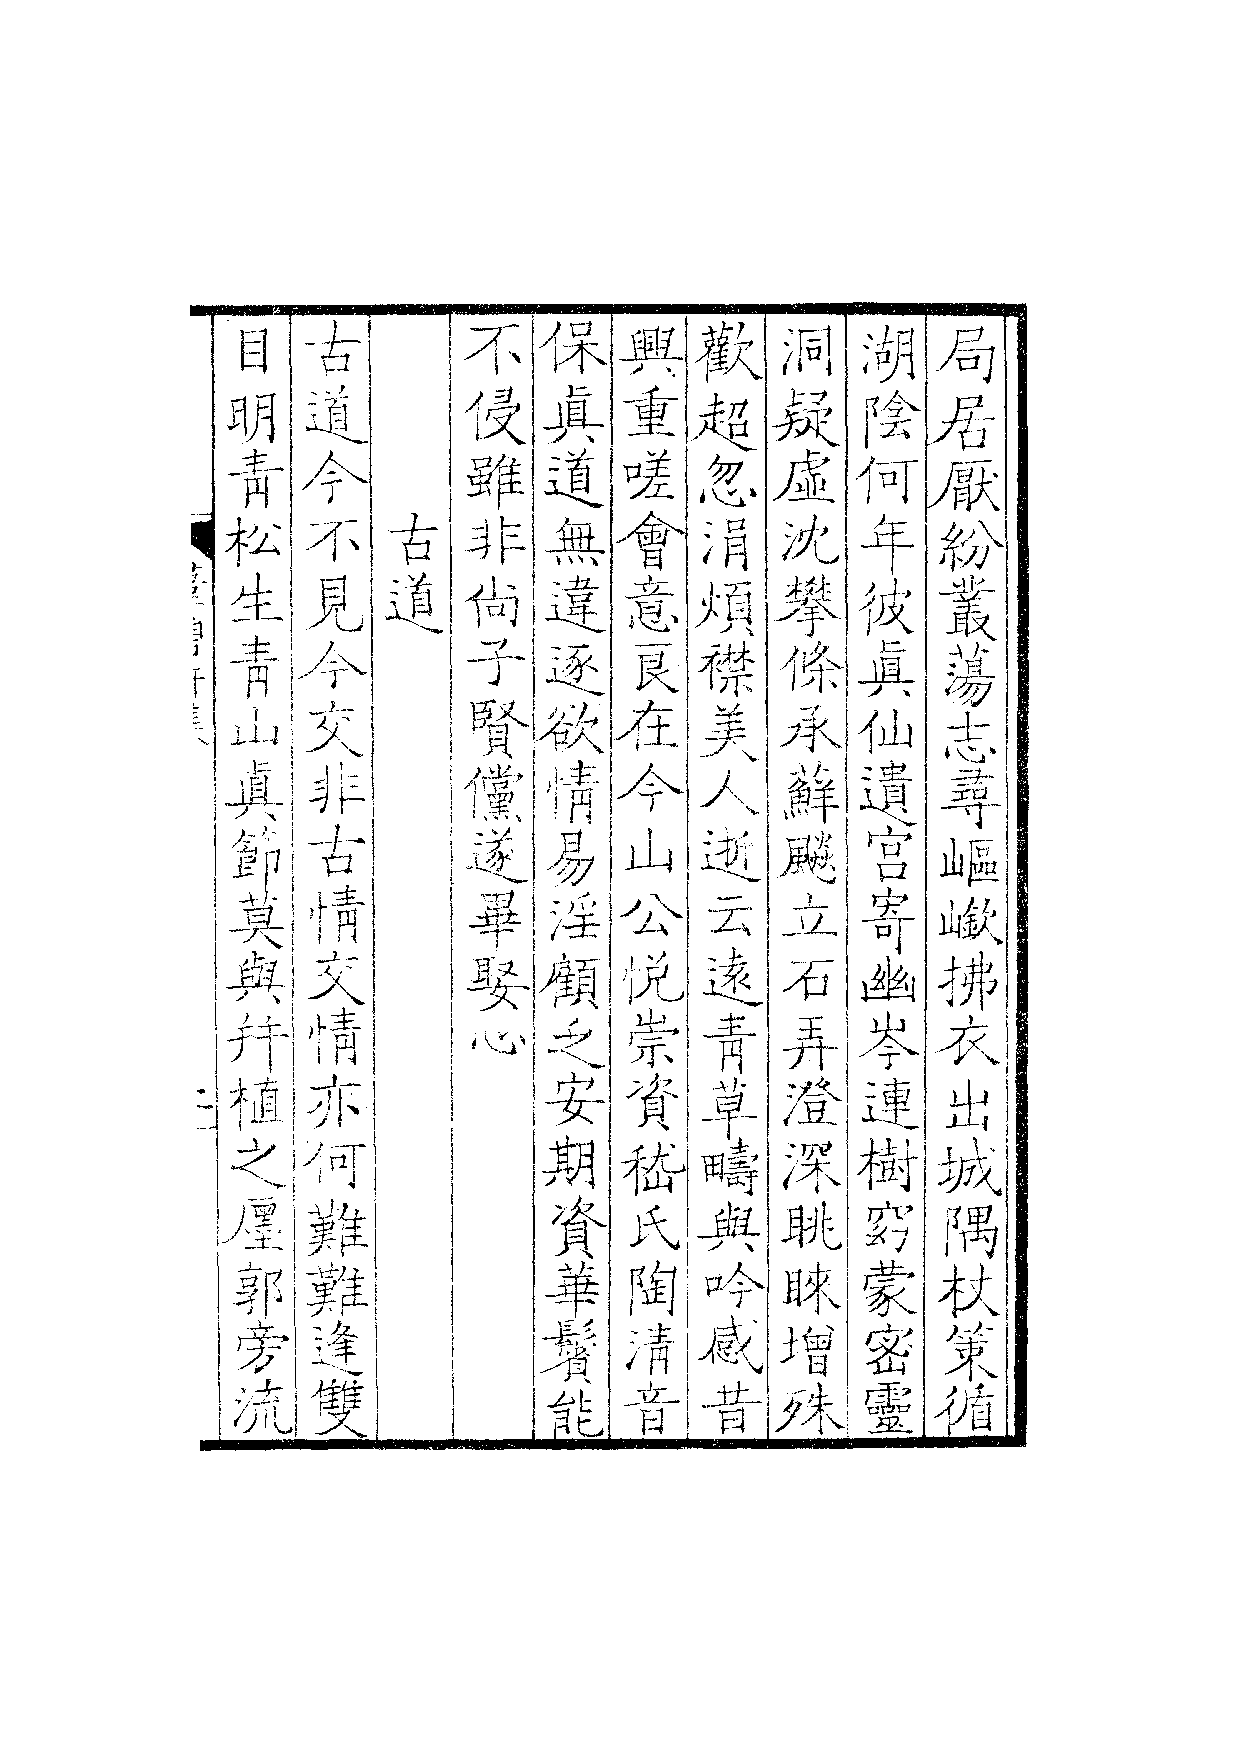 局居厭紛叢蕩志尋嶇嶔拂衣出城隅杖策循
湖陰何年彼眞仙遺宮寄幽岑連樹窈蒙密靈
洞疑虛沈攀條承蘚飈立石弄澄深眺睞增殊
歡超忽涓煩襟美人逝云遠青草疇與吟感昔
興重嗟會意良在今山公悅崇資嵇氏陶淸音
保眞道無違逐欲情易淫顧乏安期資華鬢能
不侵雖非尙子賢儻遂畢娶心
古道
古道今不見今交非古情交情亦何難難逢雙
目明青松生青山眞節莫與幷植之廛郭旁流